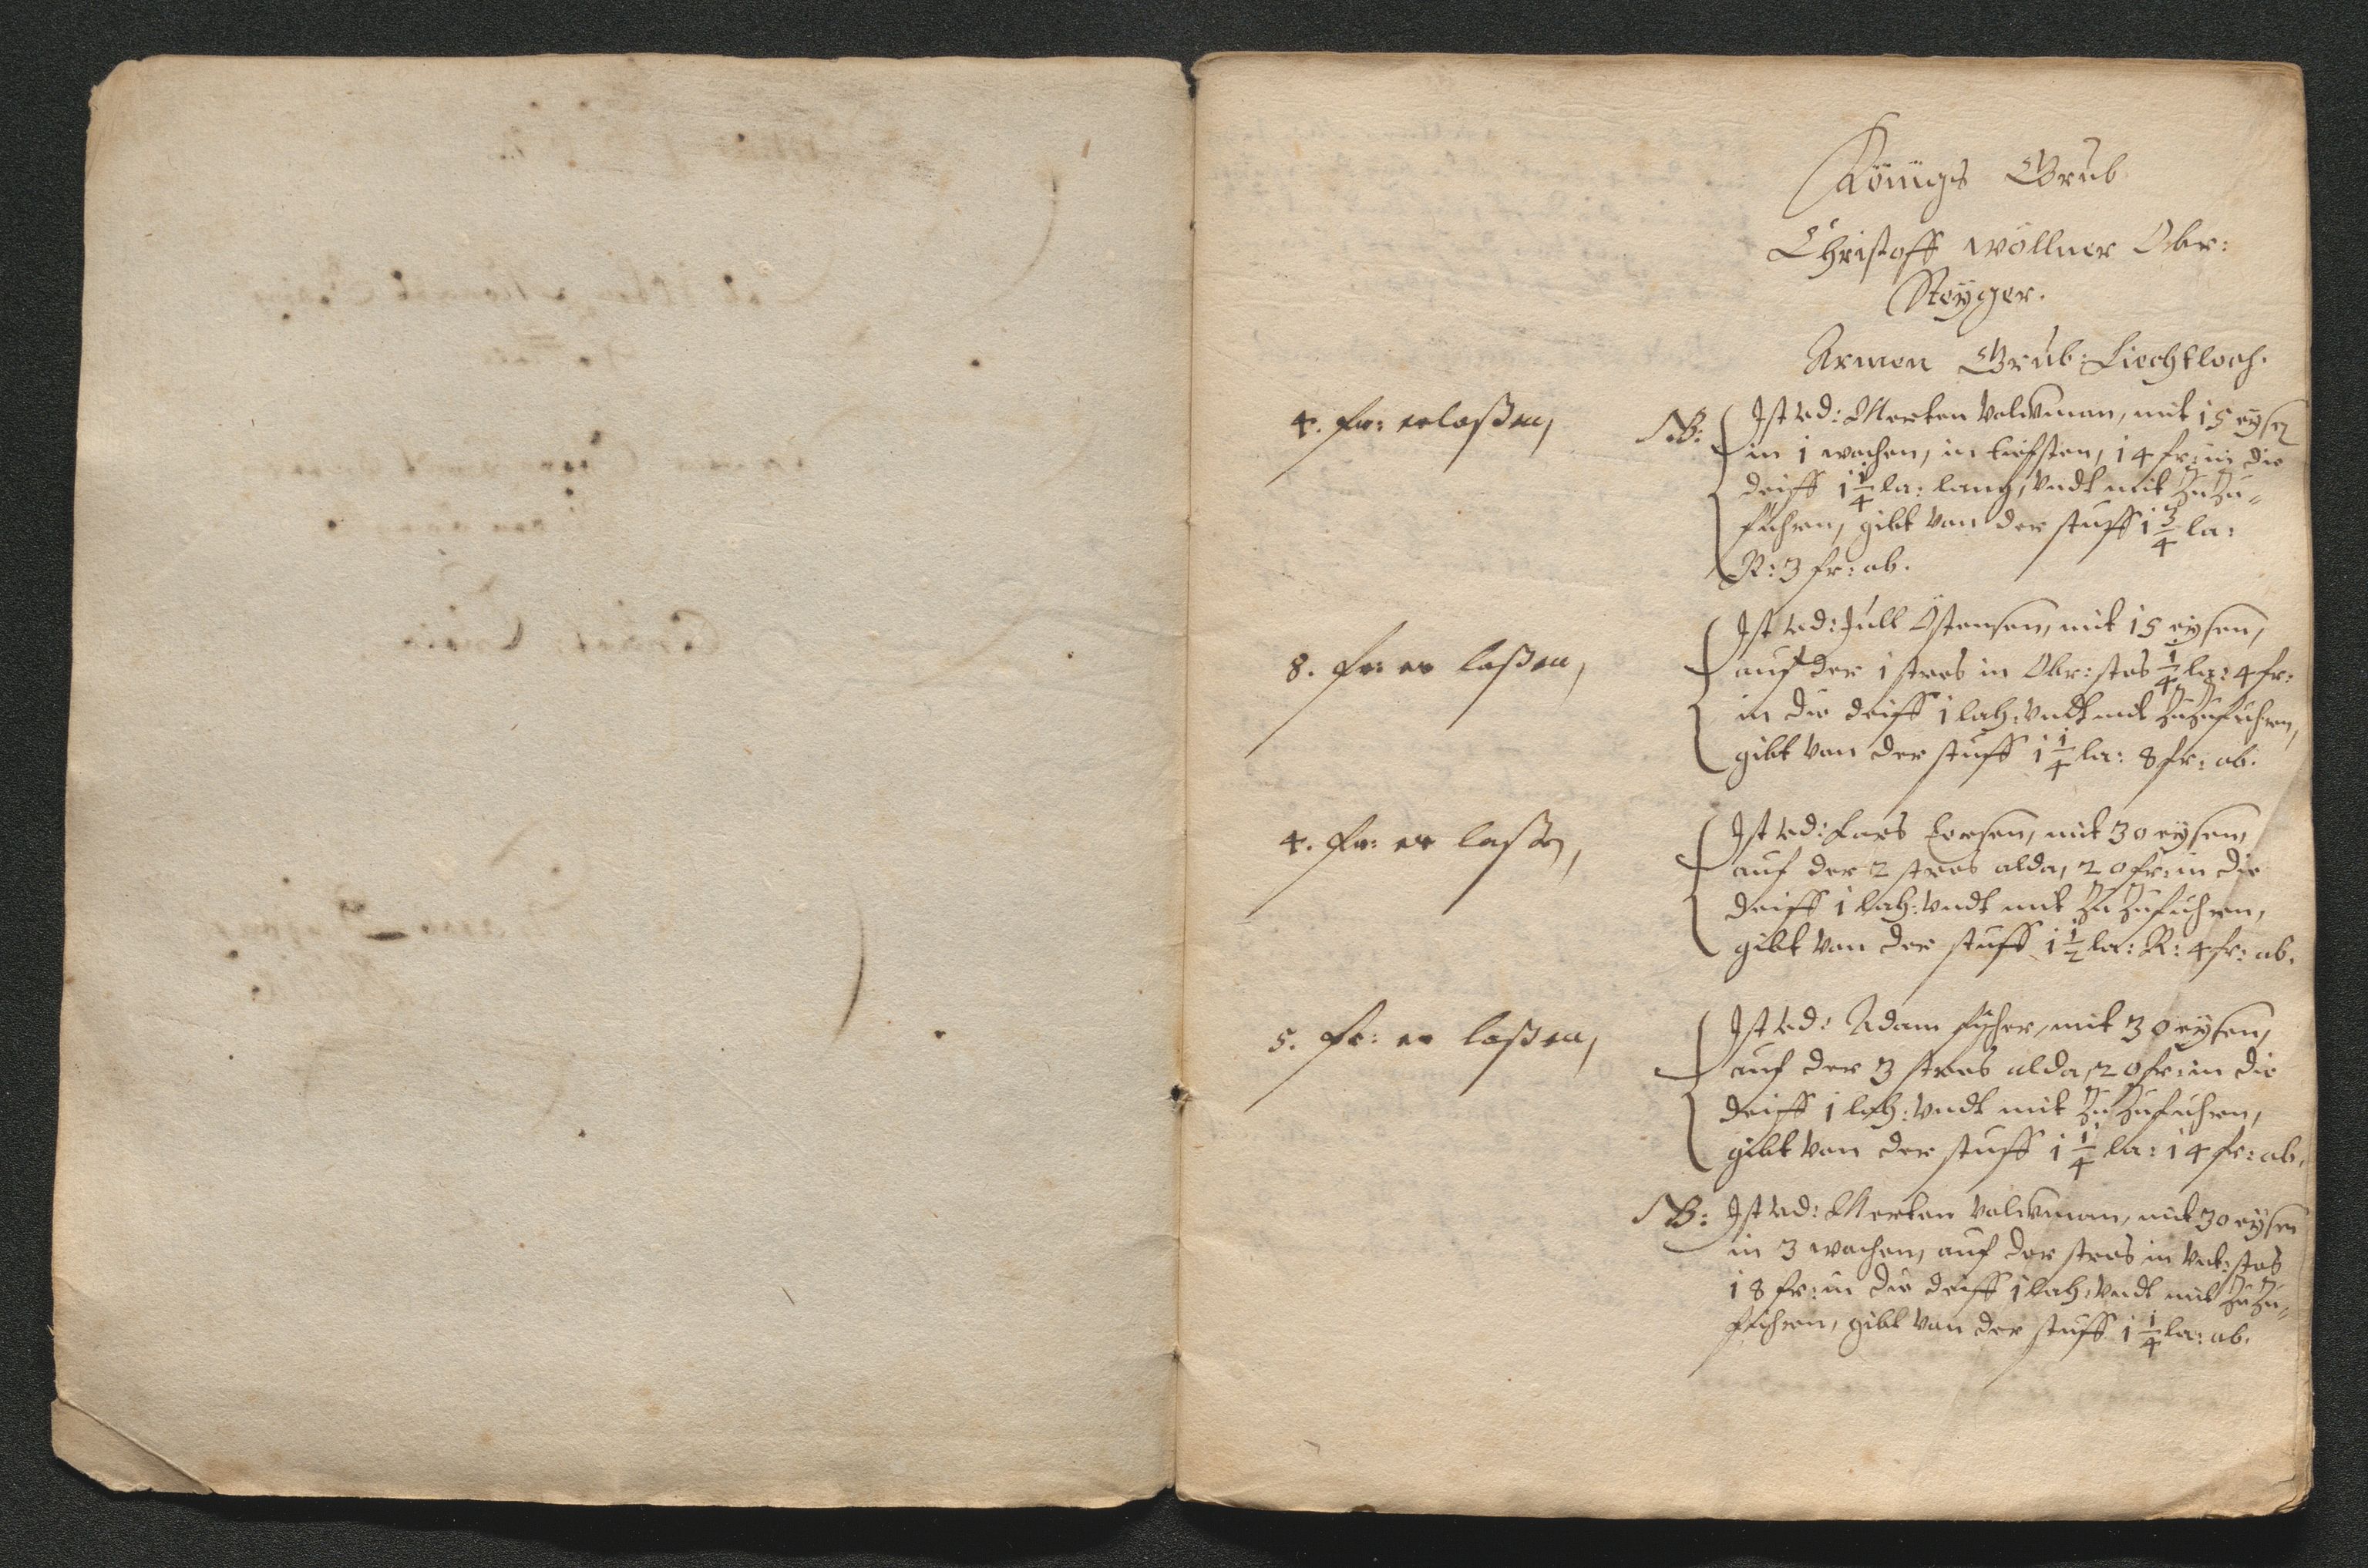 Königs Grub
Christoff wöllner Obr:
Steÿger.
Armen Grub: Liechtloch.
4. fr: erlaßen,
NB: Ist vd: Merten Valckman, mit 15 eÿsen
in 1 wochen, in tiefsten, 14 fr: in die
deiff 1 1/4 la: lang, vndt mit Zu Zu=
führen, gibt von der stuff 1 3/4 la:
R: 3 fr: ab.
8. fr: er laßen,
Ist vd: Jull Östensen, mit 15 eÿsen,
auf der 1 stros in Obr: stos 1/4 la: 4 fr:
in die deiff 1 lah: vndt mit Zu Zuführen,
gibt von der stuff 1 1/4 la: 8 fr: ab.
4. fr: er laßen,
Ist vd: Lars Corsen, mit 30 eÿsen,
auf der 2 stros alda, 20 fr: in die
deiff 1 lah: vndt mit Zu Zuführen,
gibt von der stuff 1 1/2 la: R: 4 fr: ab.
5. fr: er laßen,
Ist vd: Adam fischer, mit 30 eÿsen,
auf der 3 stros alda, 20 fr: in die
deiff 1 lah: vndt mit Zu Zuführen,
gibt von der stuff 1 1/4 la: 14 fr: ab.
NB: Ist vd: Merten Valckman, mit 30 eÿsen
in 3 wochen, auf der stros in Vnt: stos
18 fr: in die deiff 1 lah: vndt mit Zu Zu=
führen, gibt von der stuff 1 1/4 la: ab.